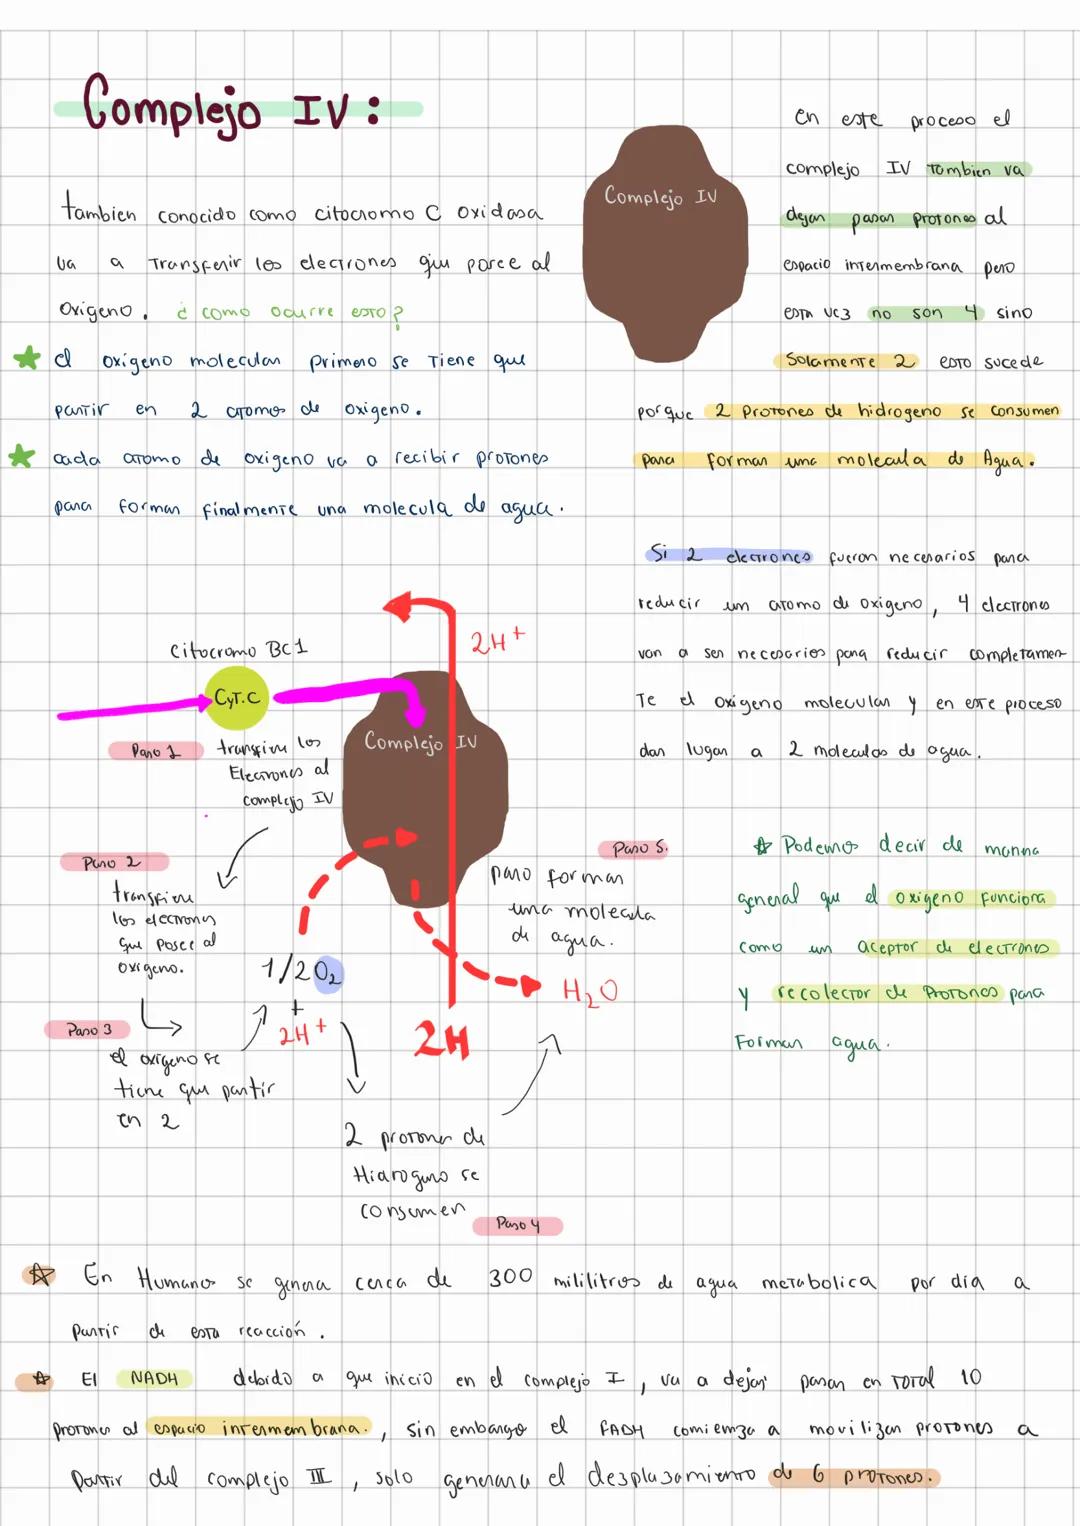 Complejo IV:
tambien conocido como citocromo C oxidasa
va a Transferir los electrones que posee al
Oxigeno. ¿como ocurre esto?
El oxigeno molecular primero se Tiene que
partir en 2 atomos de oxigeno.
cada atomo de oxigeno va a recibir protones
para formar finalmente una molecula de agua.
Complejo IV
En este proceso el
complejo IV Tambien va
dejar pasar protones al
espacio intermembrana pero
esta vez no son 4 sino
Solamente 2 esto sucede
porque 2 protones de hidrogeno se consumen
para formar una molecula de Agua.
Si 2 electrones fueron necesarios para
reducir un atomo de oxigeno, 4 electrones
van a ser necesarios para reducir completamen
Te el oxigeno molecular y en este proceso
dan lugar a 2 moleculas de agua.
Podemos decir de manna
general que el oxigeno funciona
como un aceptor de electrones
y recolector de Protones para
Formar agua.
Citocromo BC1
CyT.C
2H+
Complejo IV
Paso 1
transfiere los
Electrones al
complejo IV
Paso 2
transfiere
los electrones
que Posee al
oxigeno.
1/2O2
+
2H+
2H
H2O
Paso 5.
para formar
una molecula
de agua.
Paso 3
el oxigeno se
tiene que partir
en 2
2 protones de
Hidrogeno se
consumen
Paso 4
En Humanos se genera cerca de 300 mililitros de agua metabolica por día a
partir de esta reacción.
El NADH debido a que inicio en el complejo I, va a dejar pasar en total 10
protones al espacio intermembrana., sin embargo el FADH comienza a movilizar protones a
partir del complejo III, solo generara el desplazamiento de 6 protones.